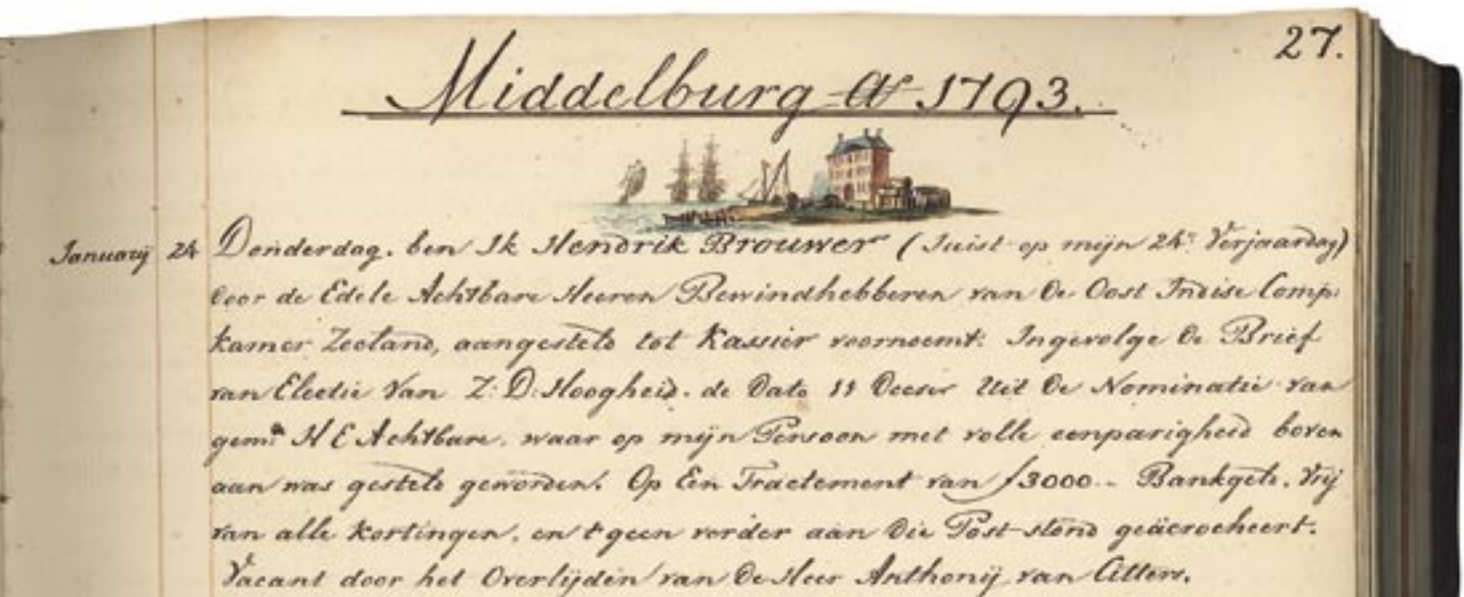 27.
Middelburg A° 1793.
Januarij 24 Donderdag. ben Ik Hendrik Brouwer (Juist op mijn 24e Verjaardag)
door de Edele Achtbare Heeren Bewindhebberen van de Oost Indise Comp:
kamer Zeeland, aangesteld tot Kassier voornoemt: Ingevolge de Brief
van Electie van Z: D: Hoogheid. de Dato 11 Deeser Uit de Nominatie van
gemde H E Achtbare. waar op mijn Persoon met volle eenparigheid boven
aan was gesteld geworden. Op Een Tractement van ƒ3000.- Bankgeld. Vrij
van alle kortingen, en t geen verder aan die Post stond geäcrocheert.
Vacant door het Overlijden van de Heer Anthonij van Citters.